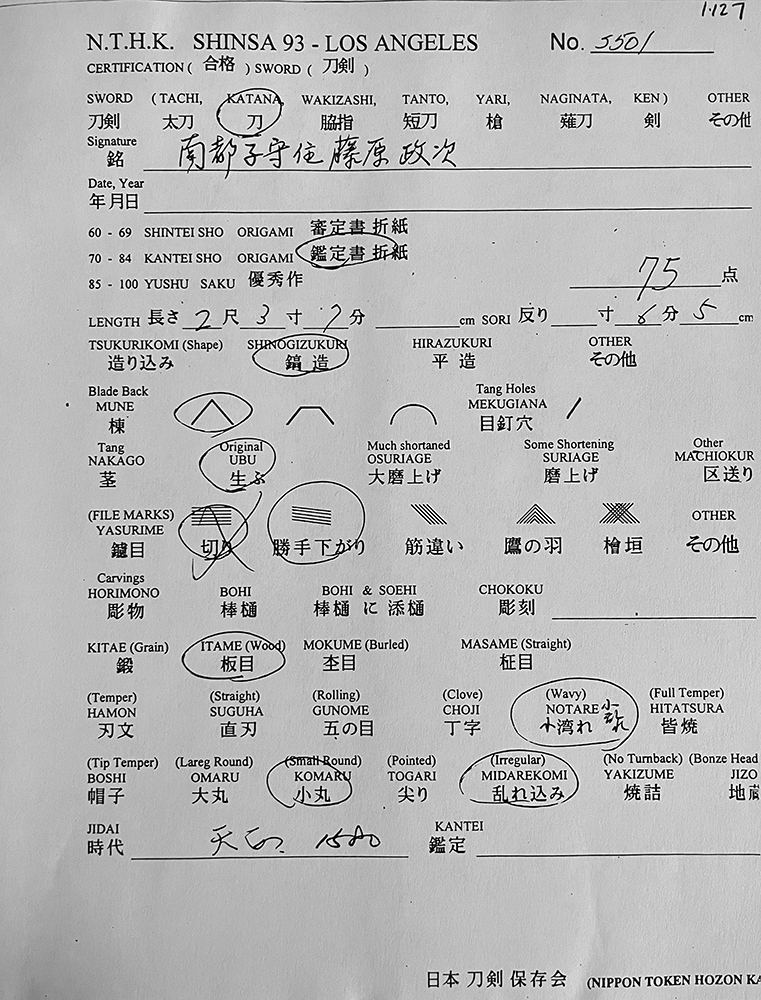 1.127
N.T.H.K. SHINSA 93 - LOS ANGELES No. 5501
CERTIFICATION ( 合格 ) SWORD ( 刀剣 )
SWORD ( TACHI, KATANA, WAKIZASHI, TANTO, YARI, NAGINATA, KEN ) OTHER
刀剣 太刀 刀 脇指 短刀 槍 薙刀 剣 その他
Signature
銘 南都子守住藤原政次
Date, Year
年月日
60 - 69 SHINTEI SHO ORIGAMI 審定書 折紙
70 - 84 KANTEI SHO ORIGAMI 鑑定書 折紙
85 - 100 YUSHU SAKU 優秀作 75 点
LENGTH 長さ 2 尺 3 寸 7 分 cm SORI 反り 寸 6 分 5 cm
TSUKURIKOMI (Shape) SHINOGIZUKURI HIRAZUKURI OTHER
造り込み 鎬造 平造 その他
Blade Back Tang Holes
MUNE MEKUGIANA /
棟 目釘穴
Tang Original Much shortaned Some Shortening Other
NAKAGO UBU OSURIAGE SURIAGE MACHIOKUR
茎 生ぶ 大磨上げ 磨上げ 区送り
(FILE MARKS)
YASURIME OTHER
鑢目 切り 勝手下がり 筋違い 鷹の羽 檜垣 その他
Carvings
HORIMONO BOHI BOHI & SOEHI CHOKOKU
彫物 棒樋 棒樋 に 添樋 彫刻
KITAE (Grain) ITAME (Wood) MOKUME (Burled) MASAME (Straight)
鍛 板目 杢目 柾目
(Temper) (Straight) (Rolling) (Clove) (Wavy) (Full Temper)
HAMON SUGUHA GUNOME CHOJI NOTARE HITATSURA
刃文 直刃 五の目 丁字 小湾れ 小乱れ 皆焼
(Tip Temper) (Lareg Round) (Small Round) (Pointed) (Irregular) (No Turnback) (Bonze Head
BOSHI OMARU KOMARU TOGARI MIDAREKOMI YAKIZUME JIZO
帽子 大丸 小丸 尖り 乱れ込み 焼詰 地蔵
JIDAI KANTEI
時代 天正 1580 鑑定
日本 刀剣 保存会 (NIPPON TOKEN HOZON KA